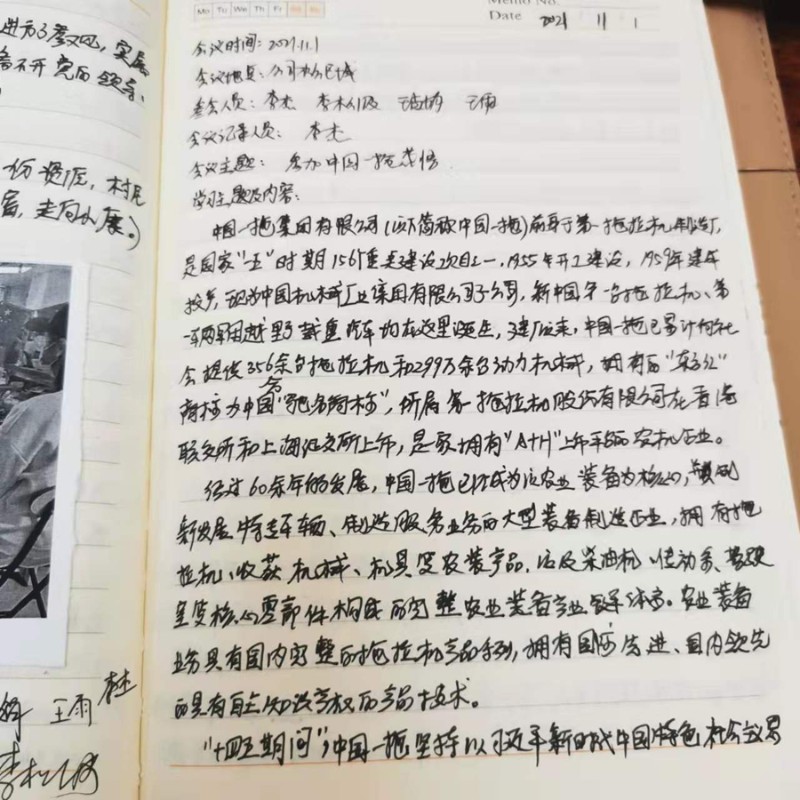 进行了参观,
不开党的领导、
村民
富,走向小康。)
王雨
Mo Tu We Th Fr Sa Su
Memo No.
Date 2021 11 1
会议时间:2021.11.1
会议地点:公司
参会人员:李杰 王雨
会议记录人员:李杰
会议主题:参加中国一拖
学习主题及内容:
中国一拖集团有限公司(以下简称中国一拖)前身于第一拖拉机制造厂,
是国家“一五”时期156个重点建设项目之一,1955年开工建设,1959年建成
投产,现为中国机械工业集团有限公司子公司,新中国第一台拖拉机、第
一辆军用越野载重汽车均在这里诞生,建厂以来,中国一拖已累计向社
会提供356余台拖拉机和299万余台动力机械,拥有的“东方红”
万
商标为中国“驰名商标”,所属第一拖拉机股份有限公司在香港
联交所和上海证交所上市,是家拥有“A+H”上市平台的农机企业。
经过60余年的发展,中国一拖已经成为以农业装备为核心,
新发展特专车辆、制造服务业务的大型装备制造企业,拥有拖
拉机、收获机械、机具等农装产品,以及柴油机、传动系、驾驶
室等核心零部件构成的完整农业装备产业链体系。农业装备
业务具有国内完整的拖拉机产品系列,拥有国际先进、国内领先
的具有自主知识产权的产品技术。
“十四五期间”,中国一拖坚持以习近平新时代中国特色社会主义